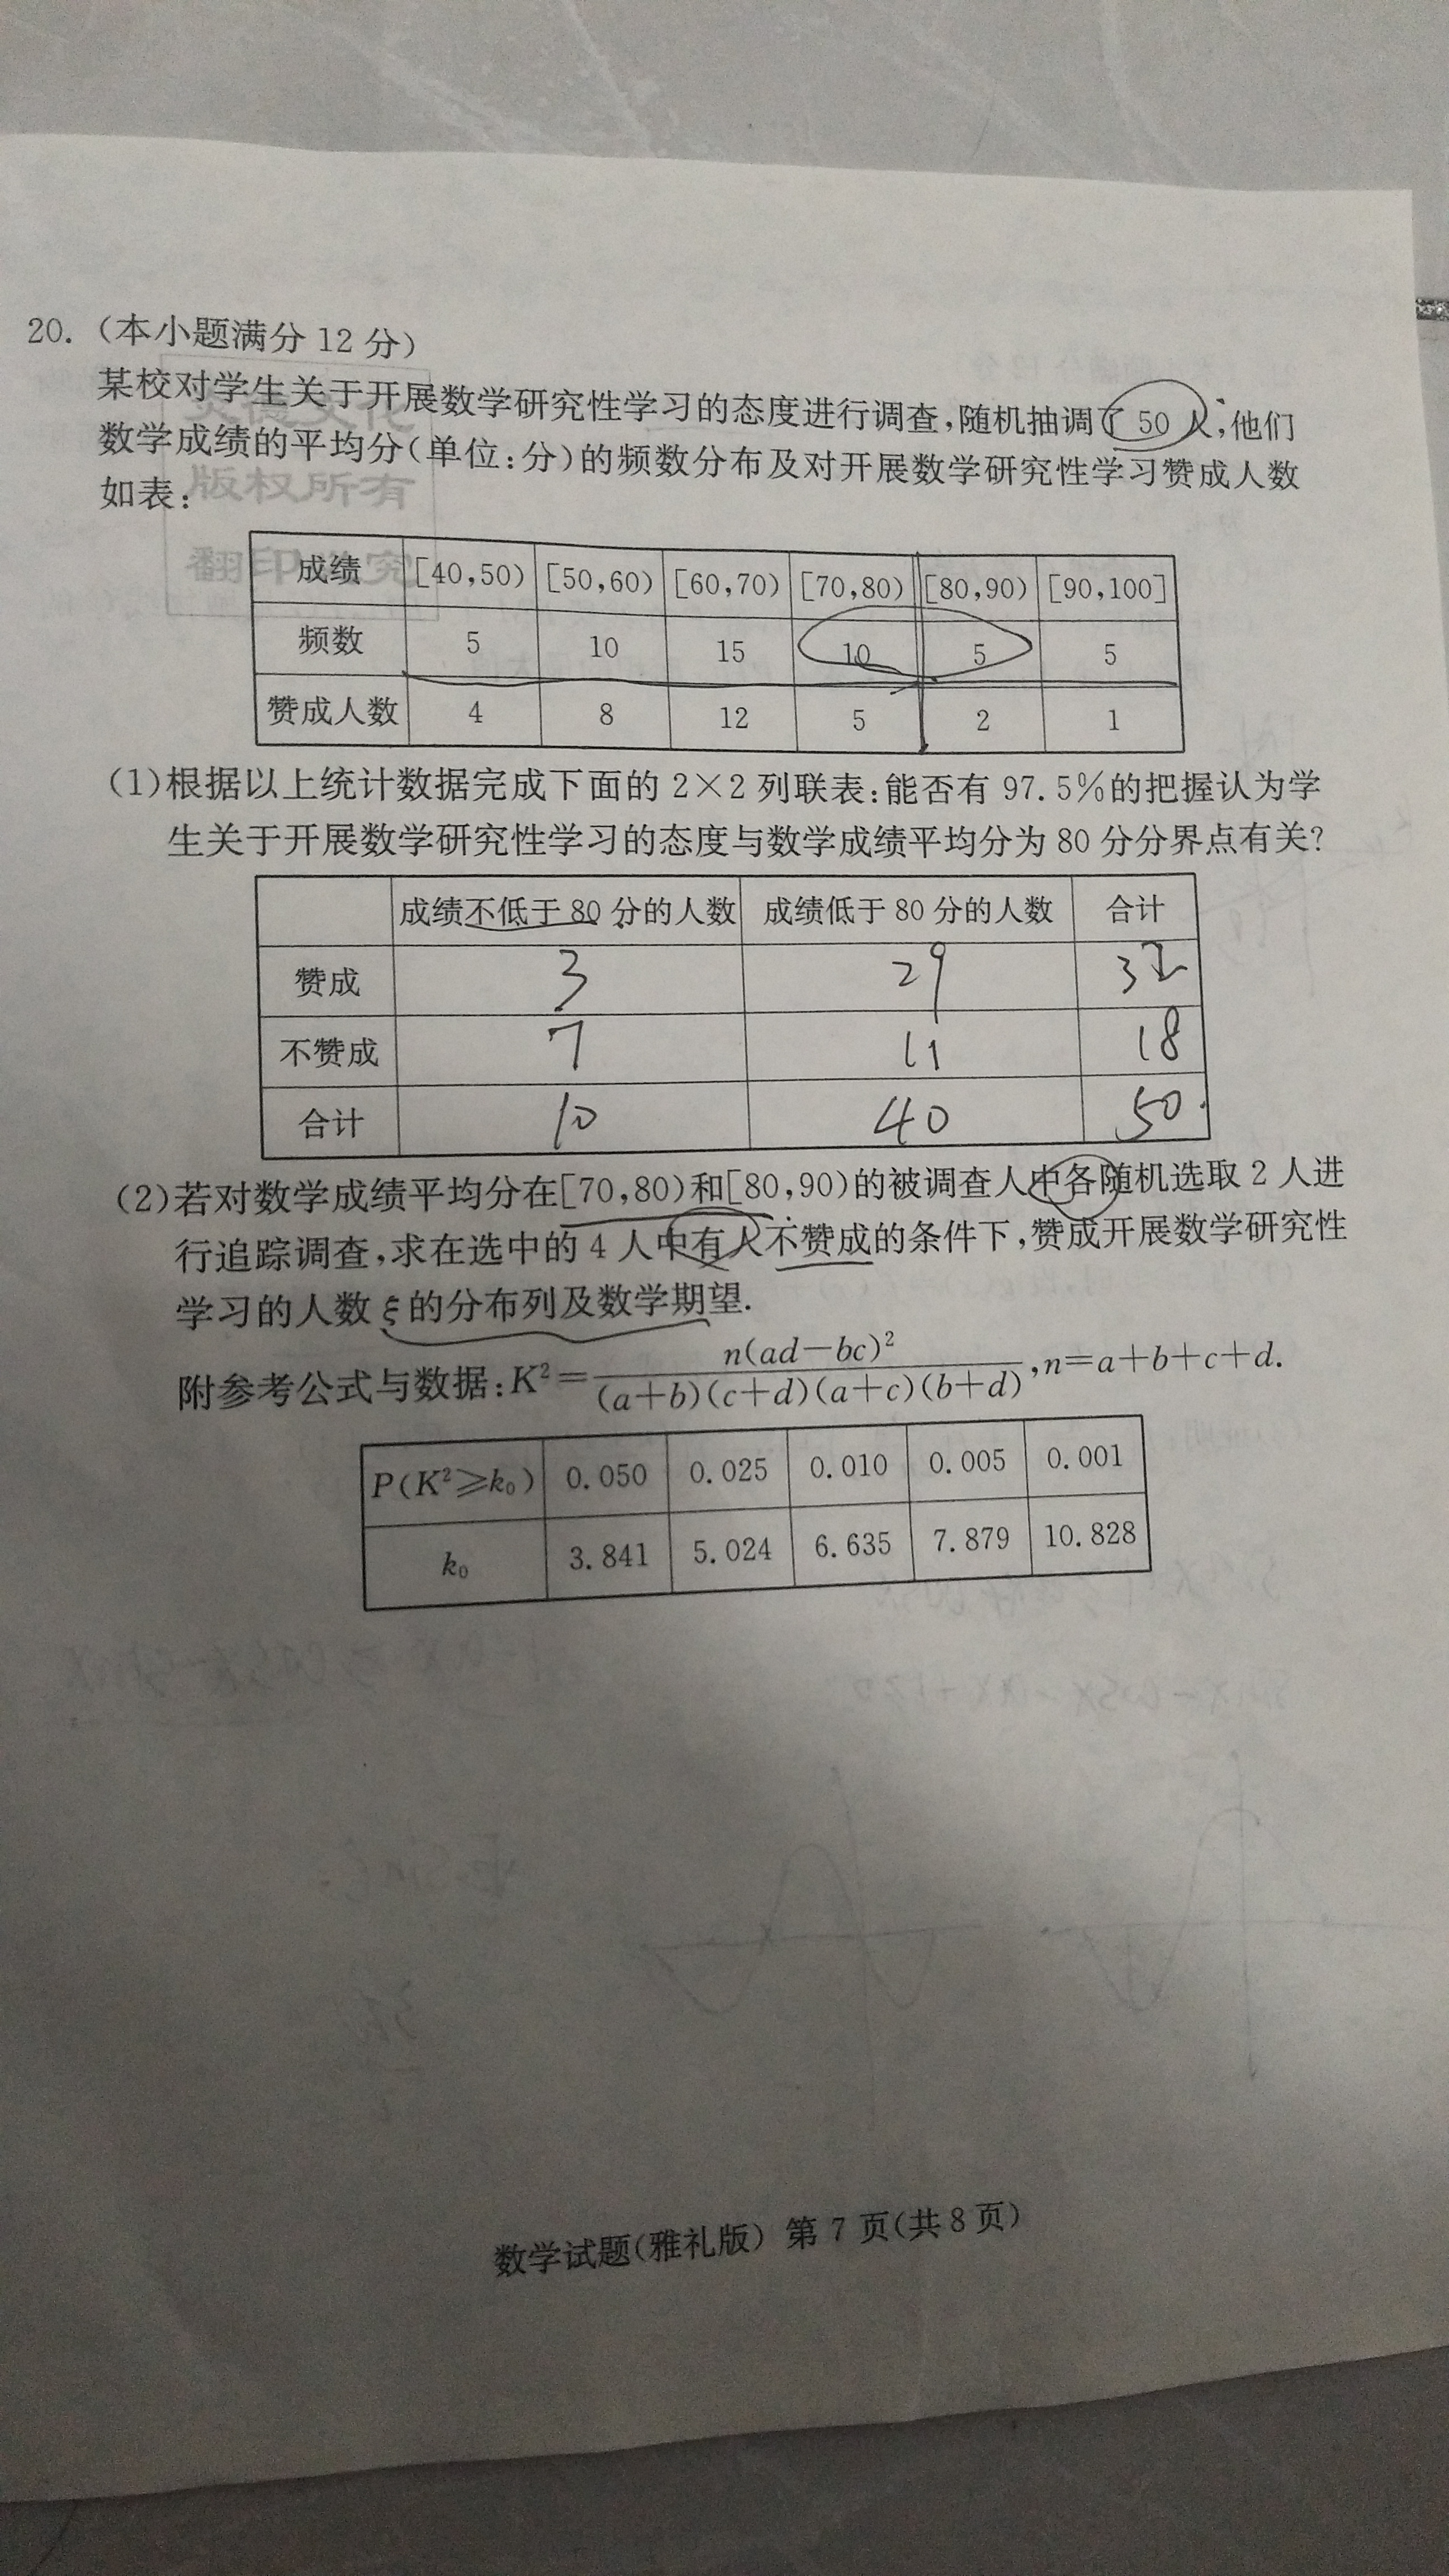 20.（本小题满分 12 分）
某校对学生关于开展数学研究性学习的态度进行调查,随机抽调了 50 人,他们
数学成绩的平均分(单位:分)的频数分布及对开展数学研究性学习赞成人数
如表:
版权所有
成绩 [40,50) [50,60) [60,70) [70,80) [80,90) [90,100]
频数 5 10 15 10 5 5
赞成人数 4 8 12 5 2 1
(1)根据以上统计数据完成下面的 2×2 列联表:能否有 97.5%的把握认为学
生关于开展数学研究性学习的态度与数学成绩平均分为 80 分分界点有关?
成绩不低于 80 分的人数 成绩低于 80 分的人数 合计
赞成 3 29 32
不赞成 7 11 18
合计 10 40 50
(2)若对数学成绩平均分在[70,80)和[80,90)的被调查人中各随机选取 2 人进
行追踪调查,求在选中的 4 人中有人不赞成的条件下,赞成开展数学研究性
学习的人数 ξ 的分布列及数学期望.
附参考公式与数据:K²=n(ad−bc)²/(a+b)(c+d)(a+c)(b+d),n=a+b+c+d.
P(K²≥k₀) 0.050 0.025 0.010 0.005 0.001
k₀ 3.841 5.024 6.635 7.879 10.828
数学试题(雅礼版) 第 7 页(共 8 页)